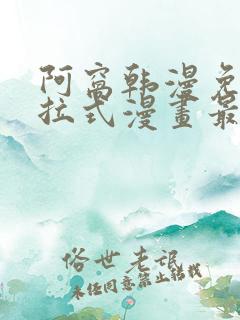 阿窝韩漫免
拉式漫畫最
俗世老诋
未经同意禁止转载